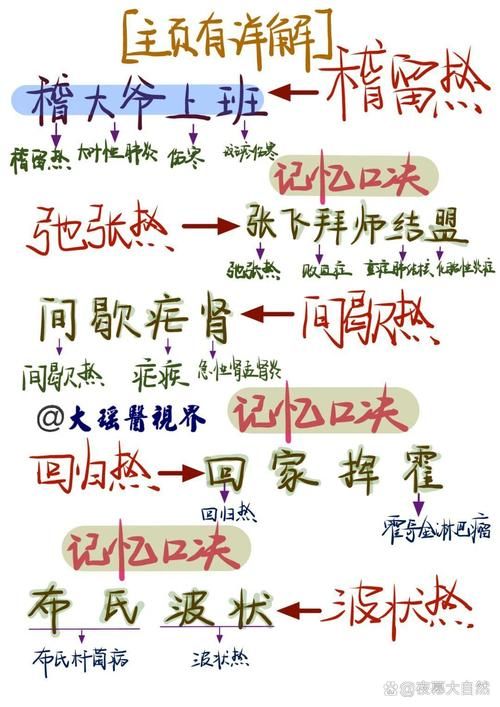 [主页有详解]
稽大爷上班 ← 稽留热
稽留热 大叶性肺炎 伤寒 斑疹伤寒
记忆口决
弛张热 → 张飞拜师结盟
弛张热 败血症 重症肺结核 化脓性炎症
间歇疟肾 ← 间歇热
间歇热 疟疾 急性肾盂肾炎
@大瑶醫視界
记忆口决
回归热 → 回家挥霍
回归热 霍奇金淋巴瘤
记忆口决
布氏波状 ← 波状热
布氏杆菌病 波状热
@夜幕大自然